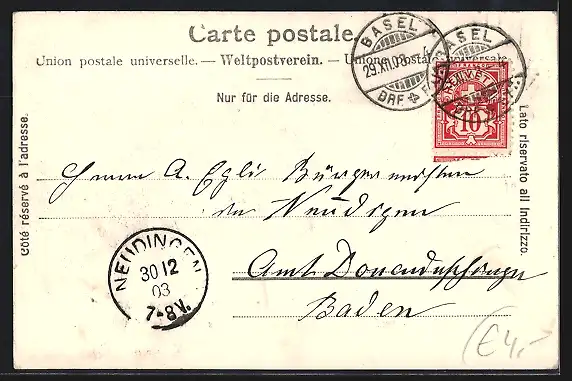 Carte postale.
Union postale universelle. — Weltpostverein. — Unione postale universale.
Nur für die Adresse.
Côté réservé à l'adresse.
Lato riservato all' indirizzo.
BASEL
29.XII.03
BRF. EXP.
BASEL
HELVETIA
10
Herrn A. Egli Bürgermeister
in Neudigen
Amt Donaueschingen
Baden
NEUDINGEN
30 12
03
7-8V.
€4,-